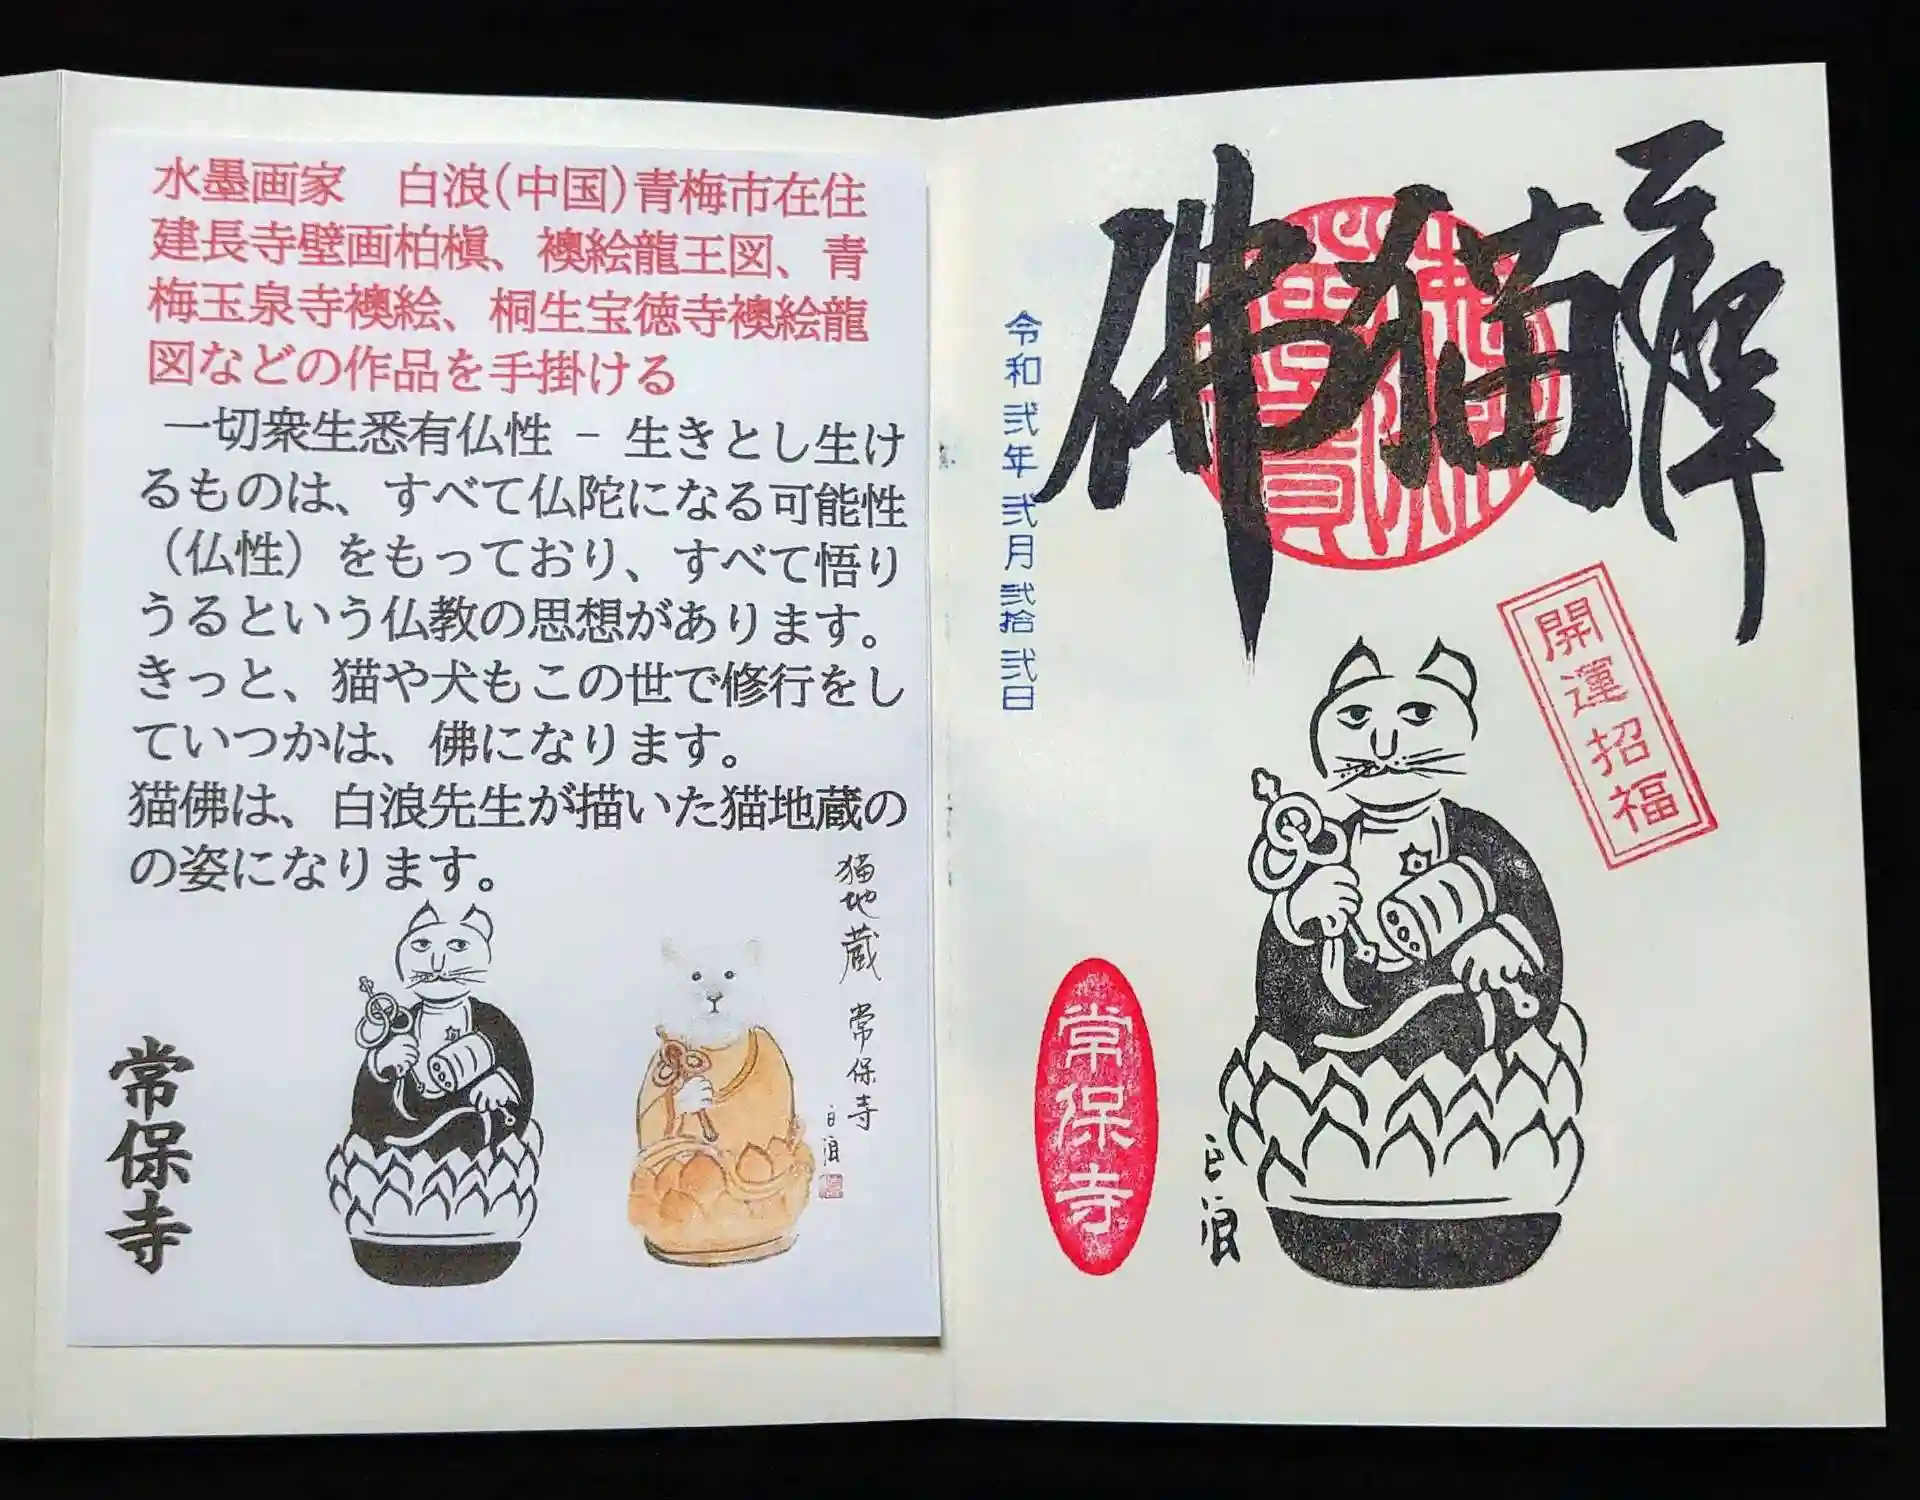 水墨画家　白浪(中国)青梅市在住
建長寺壁画柏槇、襖絵龍王図、青
梅玉泉寺襖絵、桐生宝徳寺襖絵龍
図などの作品を手掛ける
一切衆生悉有仏性 – 生きとし生け
るものは、すべて仏陀になる可能性
（仏性）をもっており、すべて悟り
うるという仏教の思想があります。
きっと、猫や犬もこの世で修行をし
ていつかは、佛になります。
猫佛は、白浪先生が描いた猫地蔵の
の姿になります。
猫地蔵 常保寺
白浪
常保寺
猫佛
令和弐年弐月弐拾弐日
開運招福
常保寺
白浪